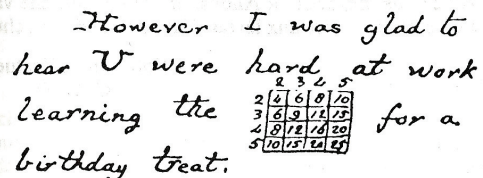 However I was glad to
hear U were hard at work
2 3 4 5
learning the 2 4 6 8 10 for a
3 6 9 12 15
4 8 12 16 20
5 10 15 20 25
birthday treat.